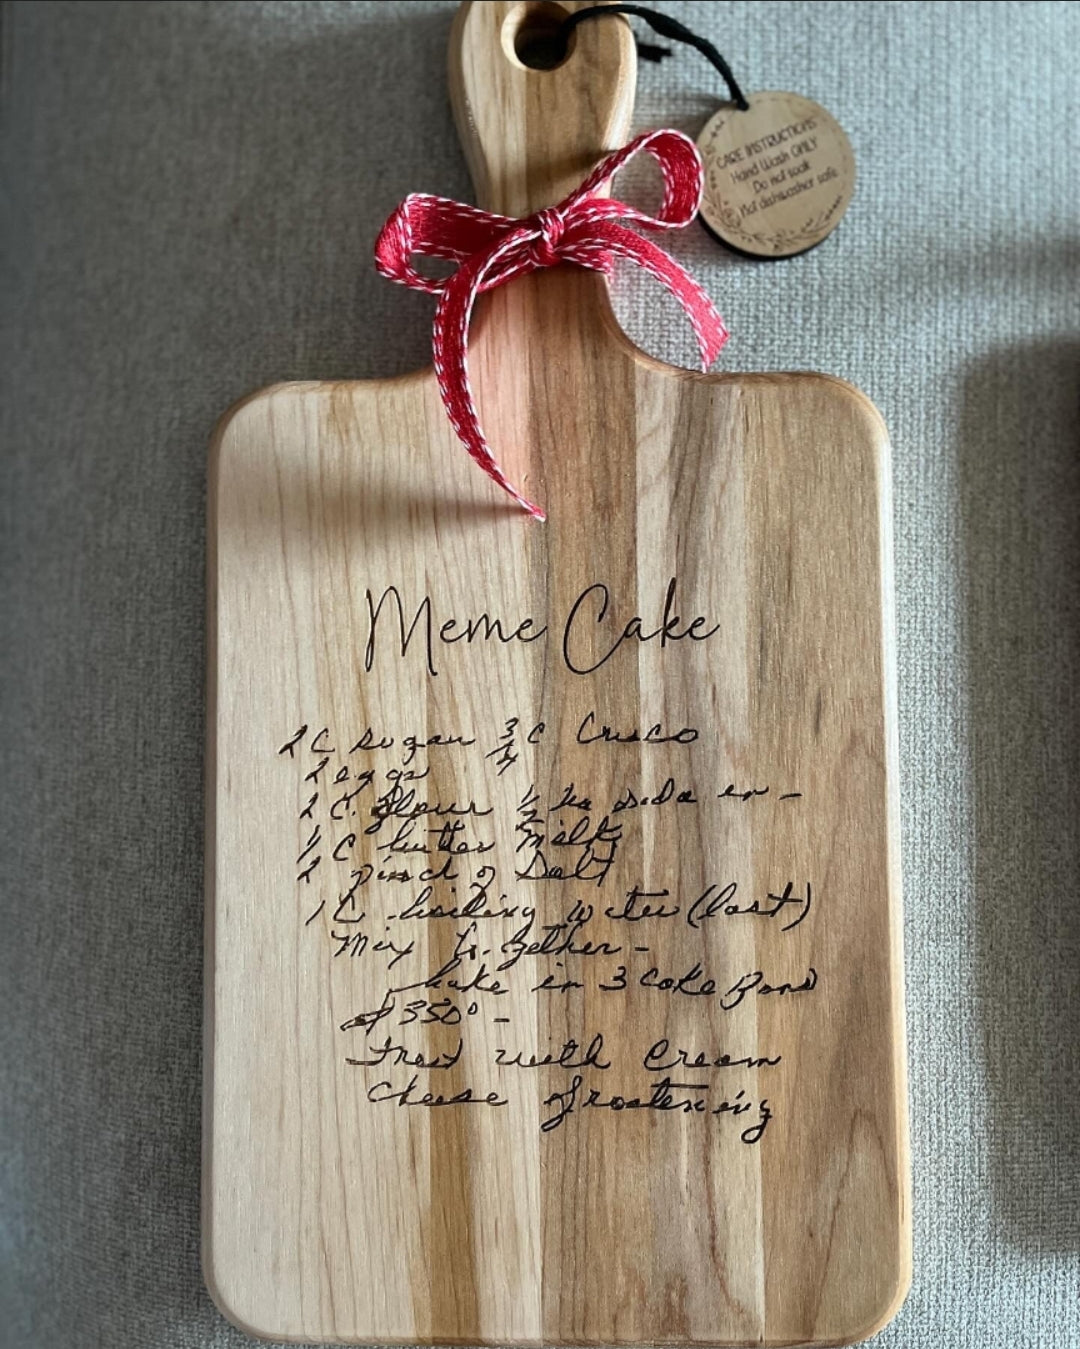 CARE INSTRUCTIONS
Hand Wash ONLY
Do not soak
Not dishwasher safe
Meme Cake
2 C sugar 3/4 C Crisco
2 eggs
2 C. flour 1/2 tea soda in -
1/2 C butter Milk
2 pinch of Salt
1 C boiling water (last)
Mix to-gether -
bake in 3 cake Pans
350° -
Frost with Cream
Cheese frostening